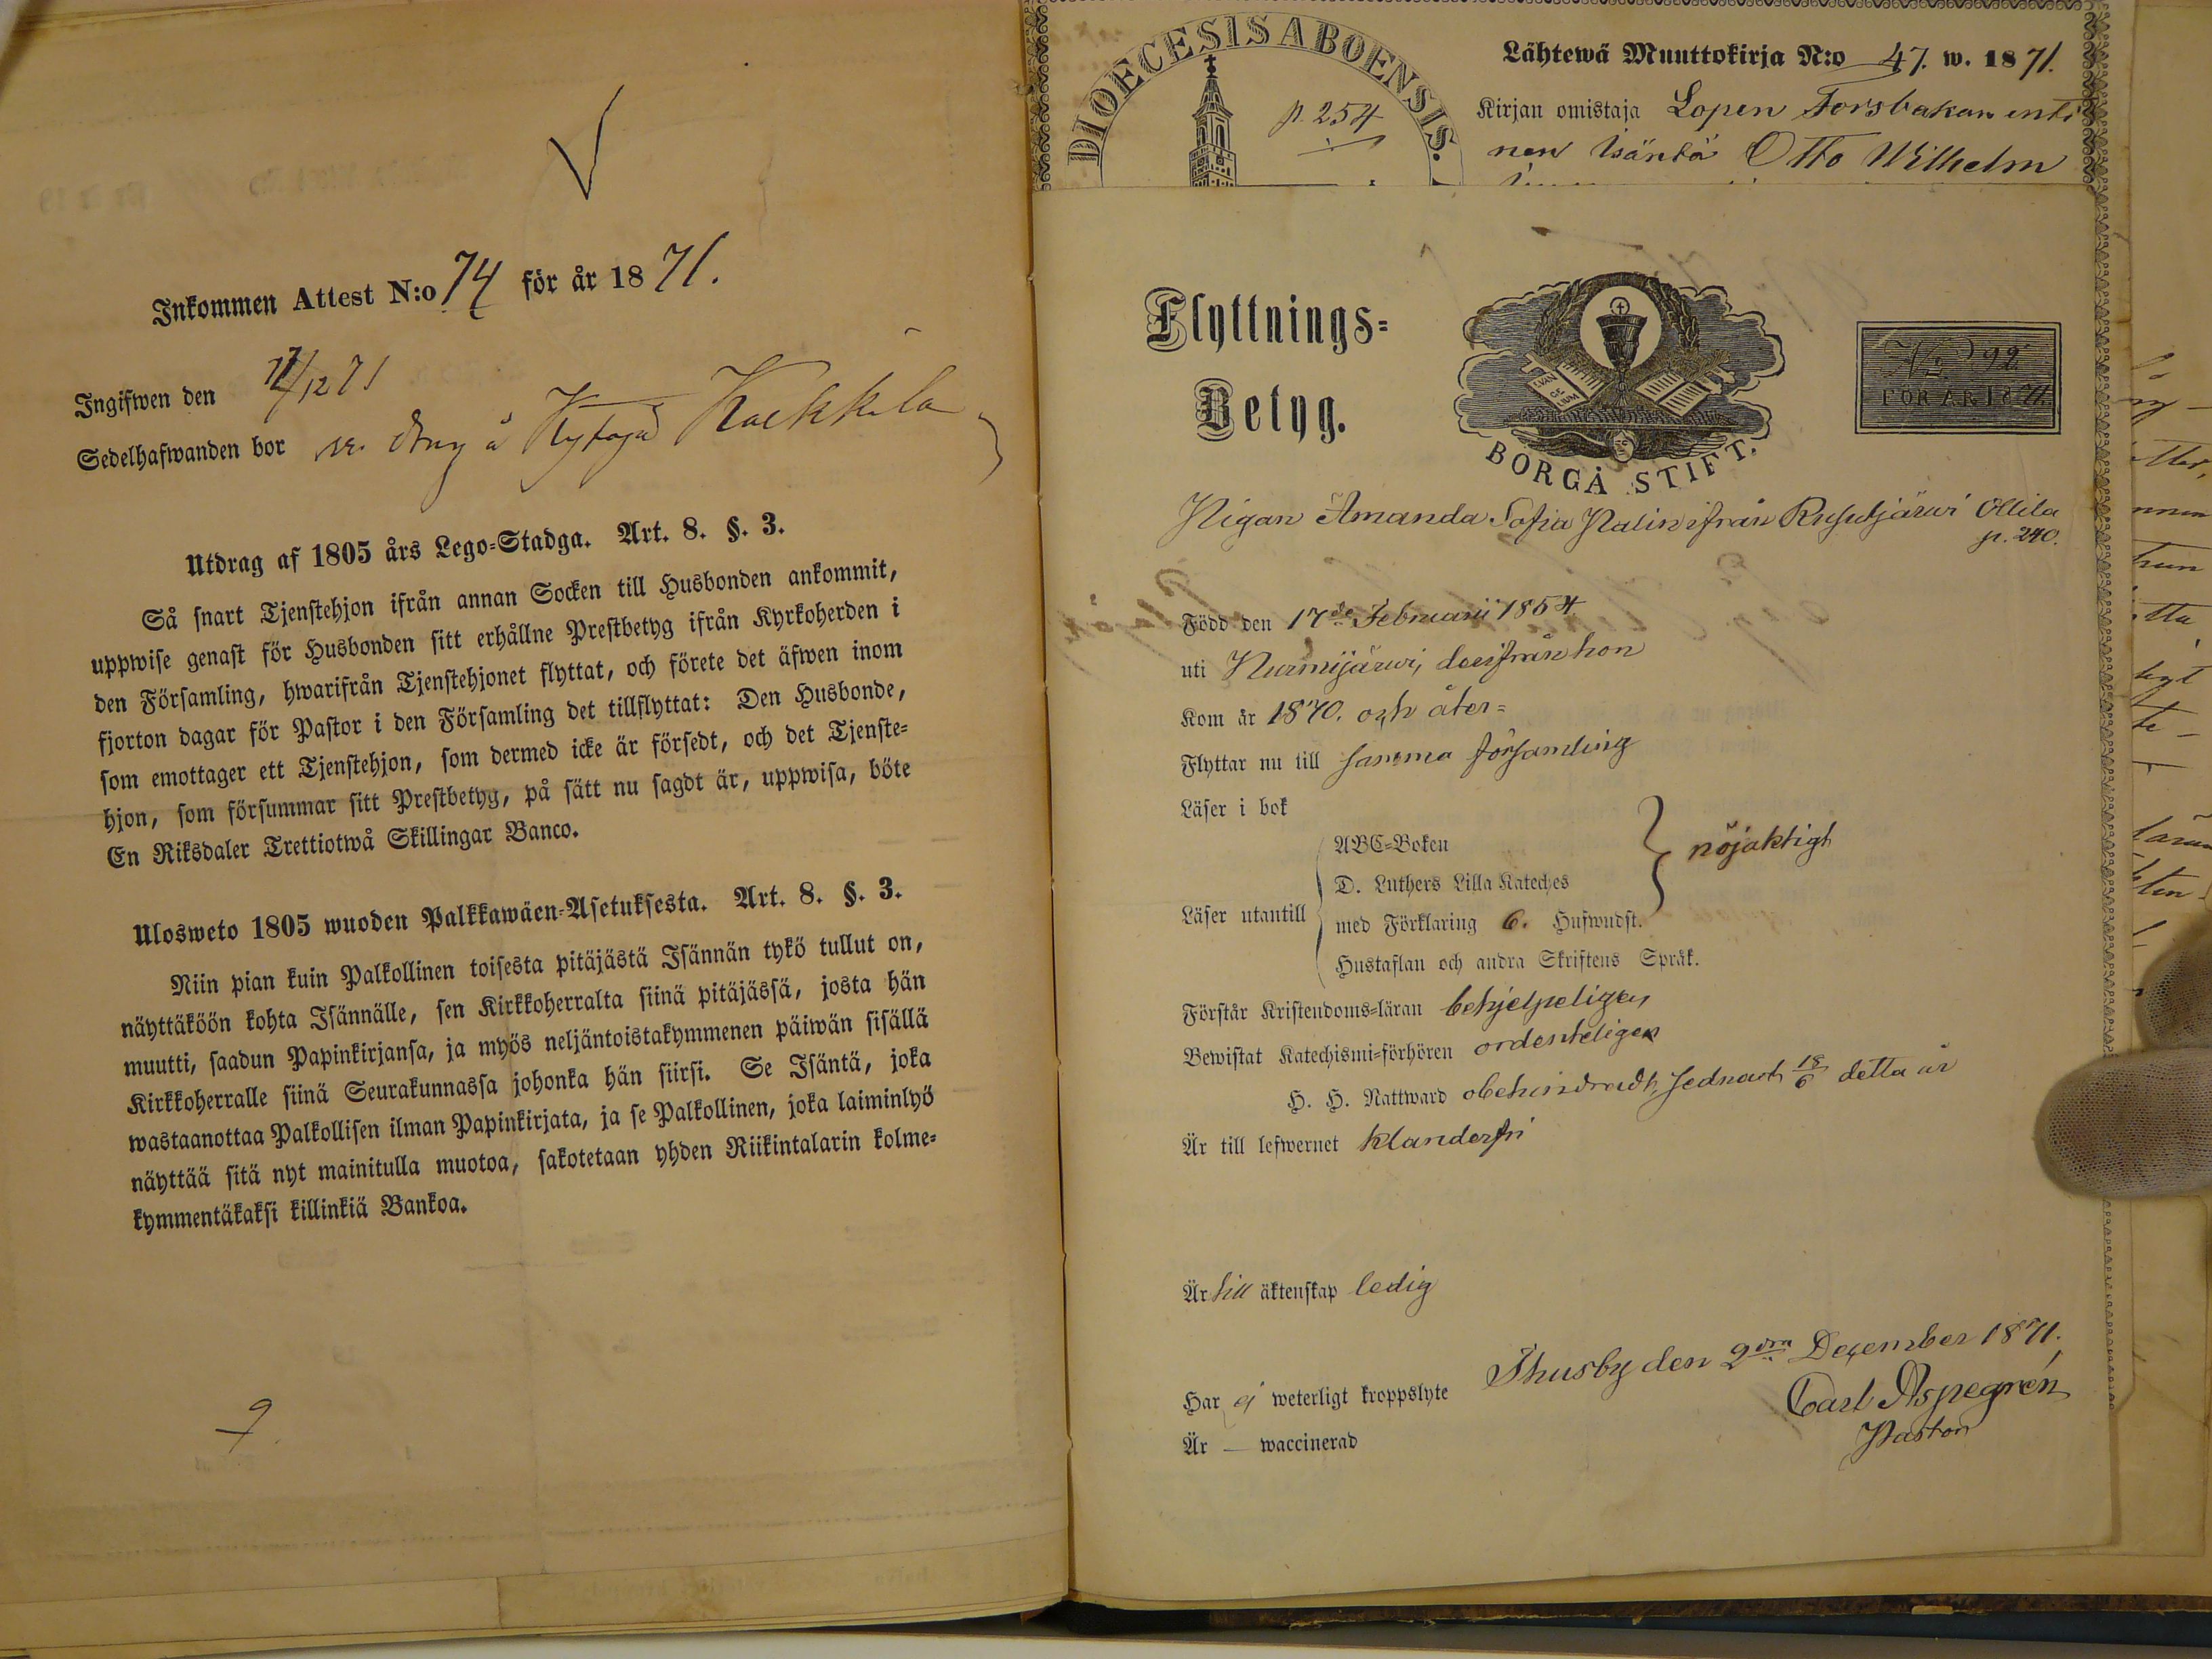 Inkommen Attest N:o 74 för år 1871.
Ingifwen den /12 71
Sedelhafwanden bor å Kytäjä
Utdrag af 1805 års Lego-Stadga. Art. 8. §. 3.
Så snart Tjenstehjon ifrån annan Socken till Husbonden ankommit,
uppwise genast för Husbonden sitt erhållne Prestbetyg ifrån Kyrkoherden i
den Församling, hwarifrån Tjenstehjonet flyttat, och förete det äfwen inom
fjorton dagar för Pastor i den Församling det tillflyttat: Den Husbonde,
som emottager ett Tjenstehjon, som dermed icke är försedt, och det Tjenste-
hjon, som försummar sitt Prestbetyg, på sätt nu sagdt är, uppwisa, böte
En Riksdaler Trettiotwå Skillingar Banco.
Ulosweto 1805 wuoden Palkkawäen-Asetuksesta. Art. 8. §. 3.
Niin pian kuin Palkollinen toisesta pitäjästä Isännän tykö tullut on,
näyttäköön kohta Isännälle, sen Kirkkoherralta siinä pitäjässä, josta hän
muutti, saadun Papinkirjansa, ja myös neljäntoistakymmenen päiwän sisällä
Kirkkoherralle siinä Seurakunnassa johonka hän siirsi. Se Isäntä, joka
wastaanottaa Palkollisen ilman Papinkirjata, ja se Palkollinen, joka laiminlyö
näyttää sitä nyt mainitulla muotoa, sakotetaan yhden Riikintalarin kolme-
kymmentäkaksi killinkiä Bankoa.
DIOECESIS ABOENSIS.
p. 254
Lähtewä Muuttokirja N:o 47. w. 1871.
Kirjan omistaja Lopen Forsbakan enti
nen Isäntä Otto Wilhelm
Flyttnings-
Betyg.
EVAN
GE
LIUM
BORGÅ STIFT.
No 92
FÖR ÅR 1871.
Pigan Amanda Sofia Malin ifrån Rusutjärwi Ollila
p. 240.
Född den 17de Februarii 1854
uti Nurmijärwi, derifrån hon
Kom år 1870. och åter=
Flyttar nu till samma församling
Läser i bok
Läser utantill
ABC-Boken
D. Luthers Lilla Kateches
med Förklaring 6. Hufwudst.
Hustaflan och andra Skriftens Språk.
nöjaktigt
Förstår Kristendoms-läran behjelpeligen
Bewistat Katechismi-förhören ordenteligen
H. H. Nattward obehindradt, sednast 18/6 detta år
Är till lefwernet klanderfri
Är till äktenskap ledig
Thusby den 2dra December 1871.
Carl Aspegrén
Pastor
Har ej weterligt kroppslyte
Är — waccinerad